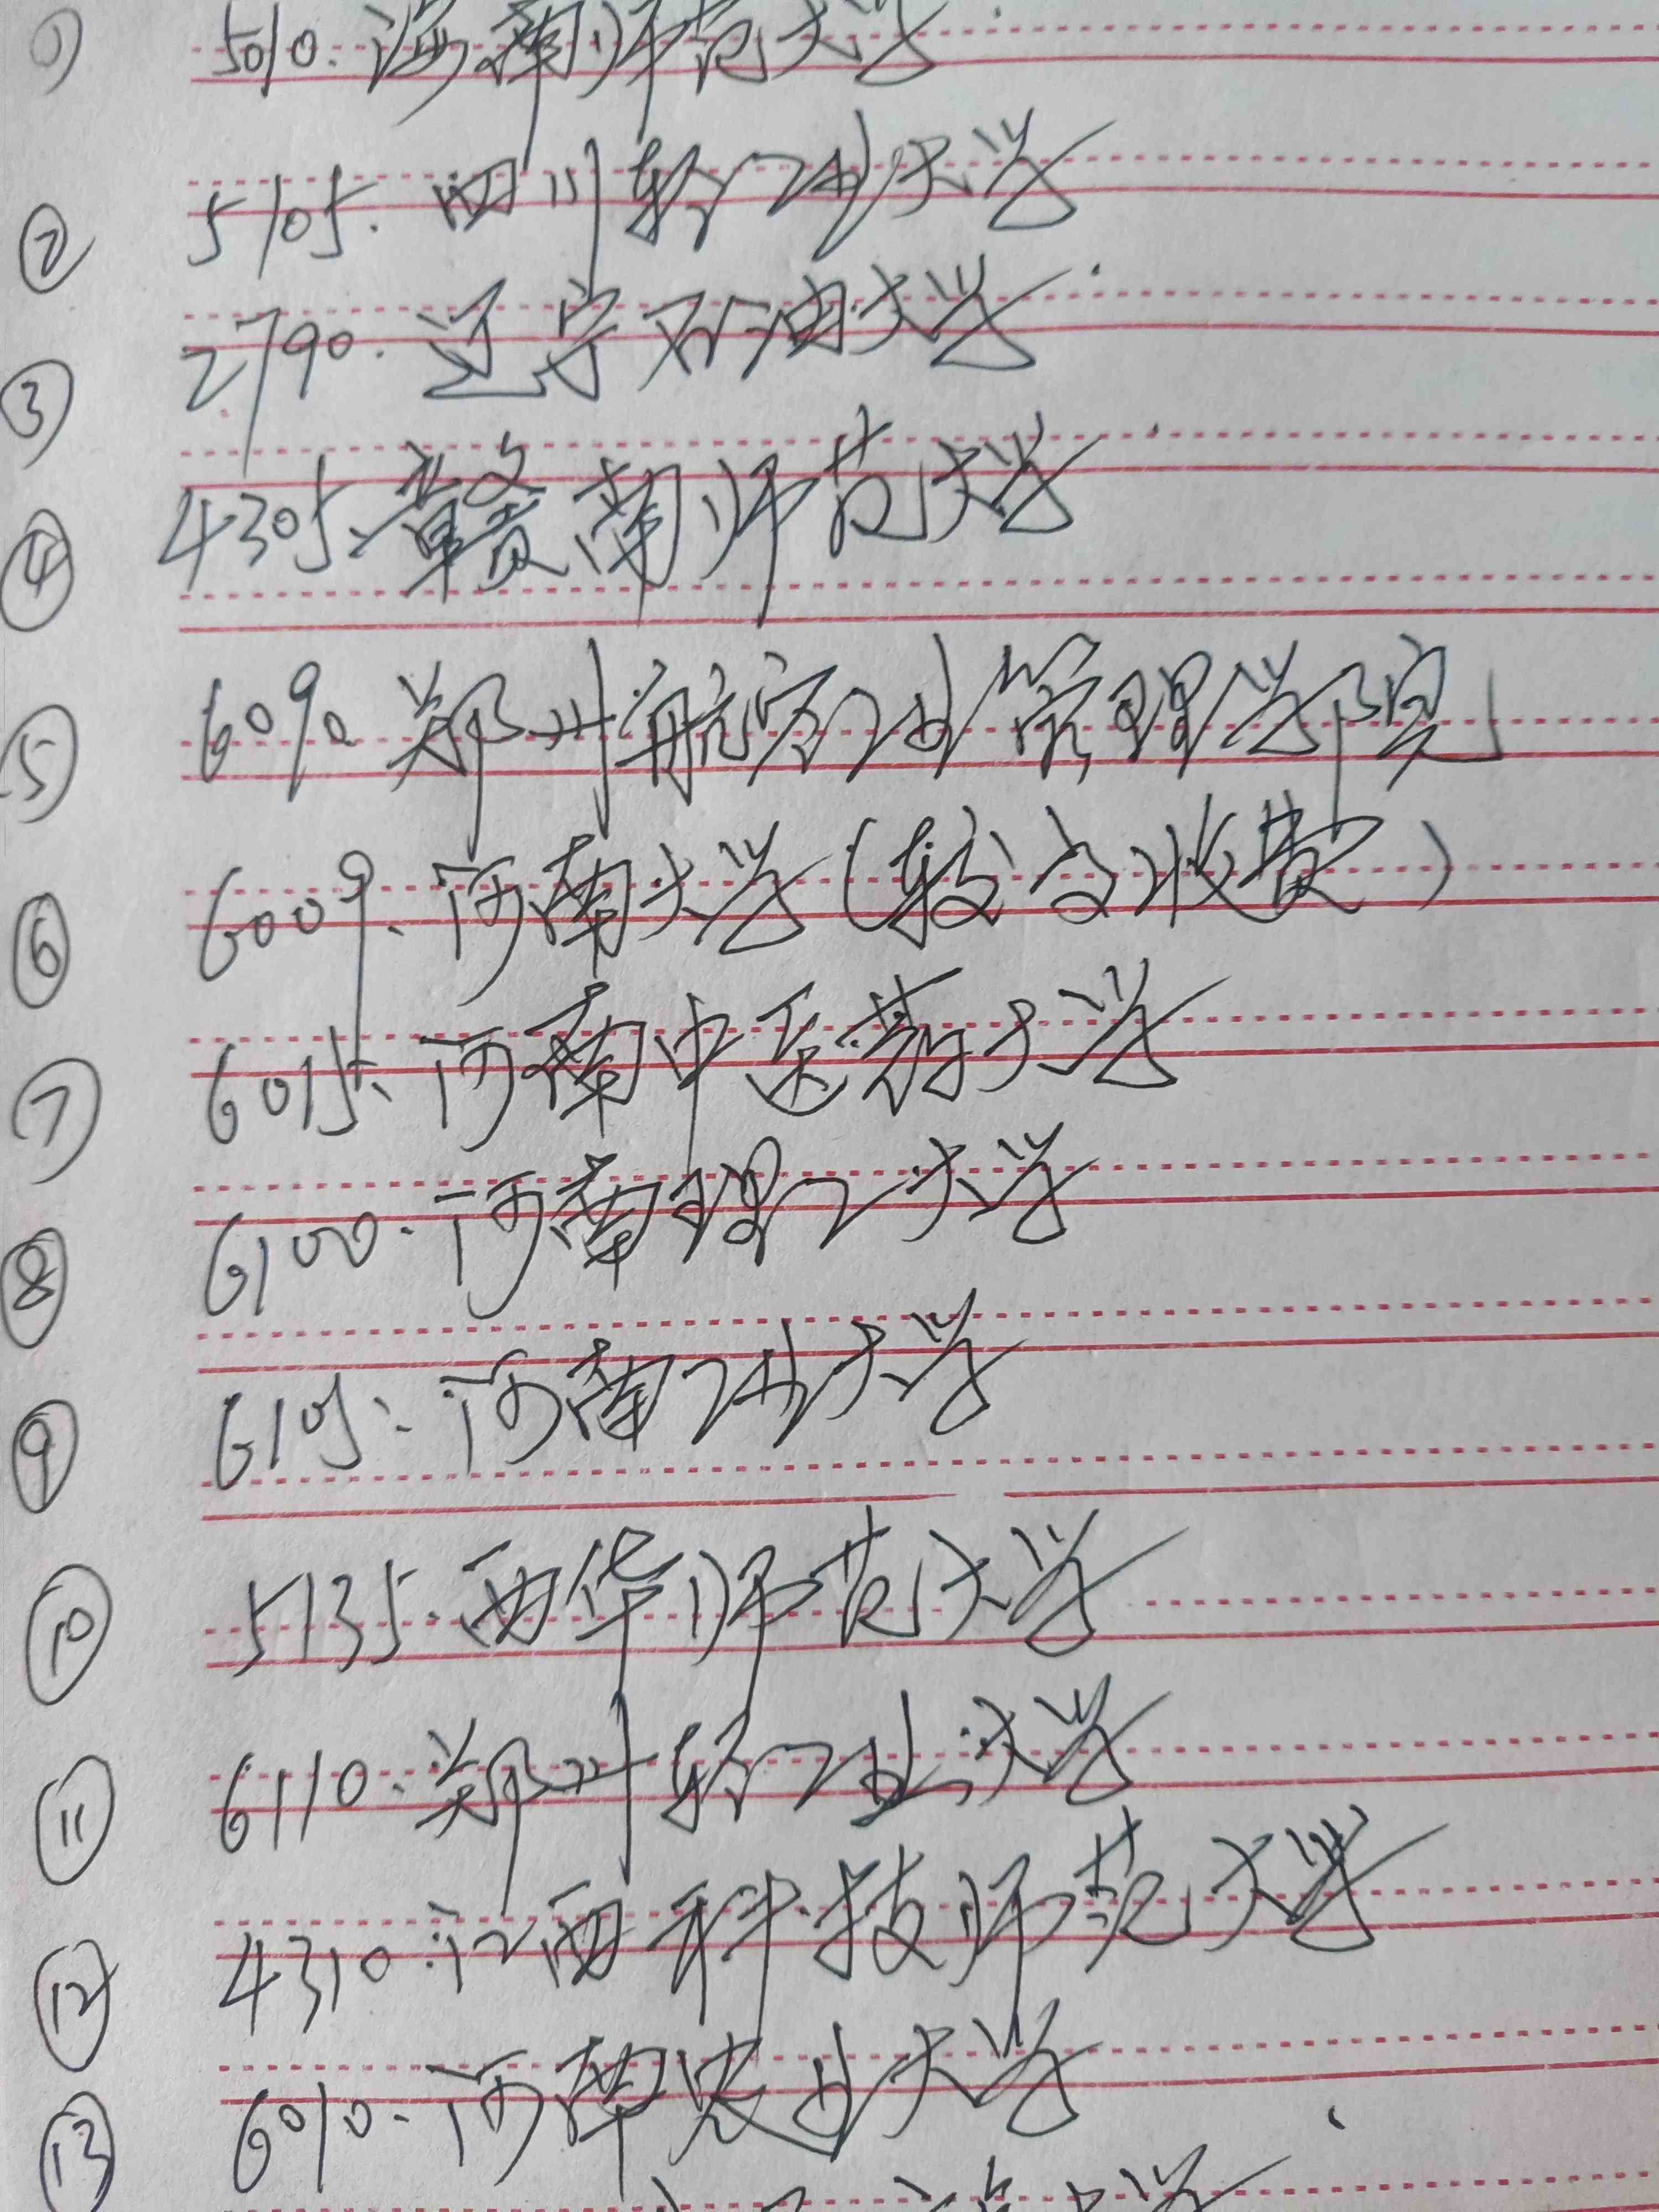 ① 5010.海南师范大学
② 5105.四川轻化工大学
③ 2790.辽宁石油大学
④ 4305.赣南师范大学
⑤ 6090.郑州航空工业管理学院
⑥ 6009.河南大学(较高收费)
⑦ 6015.河南中医药大学
⑧ 6100.河南理工大学
⑨ 6105.河南工业大学
⑩ 5135.西华师范大学
⑪ 6110.郑州轻工业大学
⑫ 4310.江西科技师范大学
⑬ 6010.河南农业大学